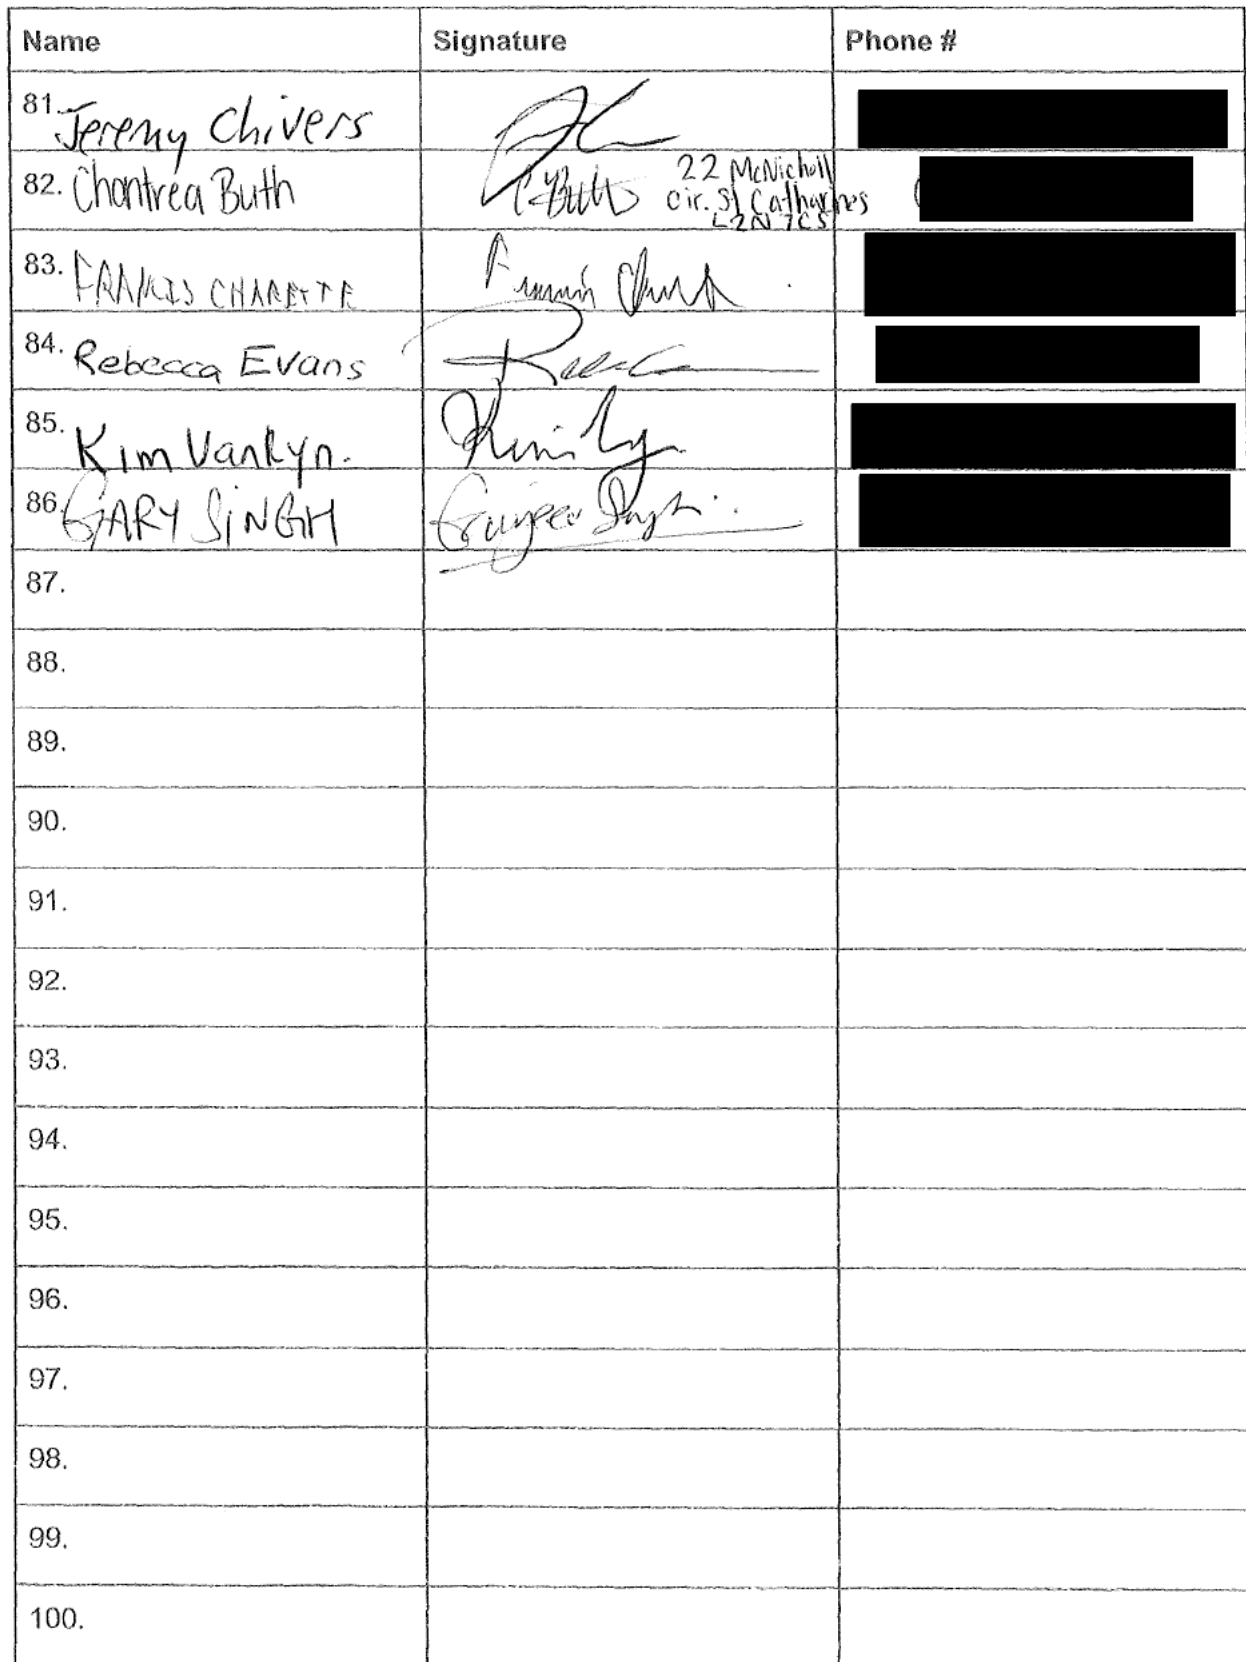 Name Signature Phone #
81. Jeremy Chivers
82. Chantrea Buth C Buth 22 McNicholl
cir. St Catharines
L2N 7C5
83. FRANCIS CHARETTE
84. Rebecca Evans
85. Kim VanRyn.
86. GARY SINGH
87.
88.
89.
90.
91.
92.
93.
94.
95.
96.
97.
98.
99.
100.